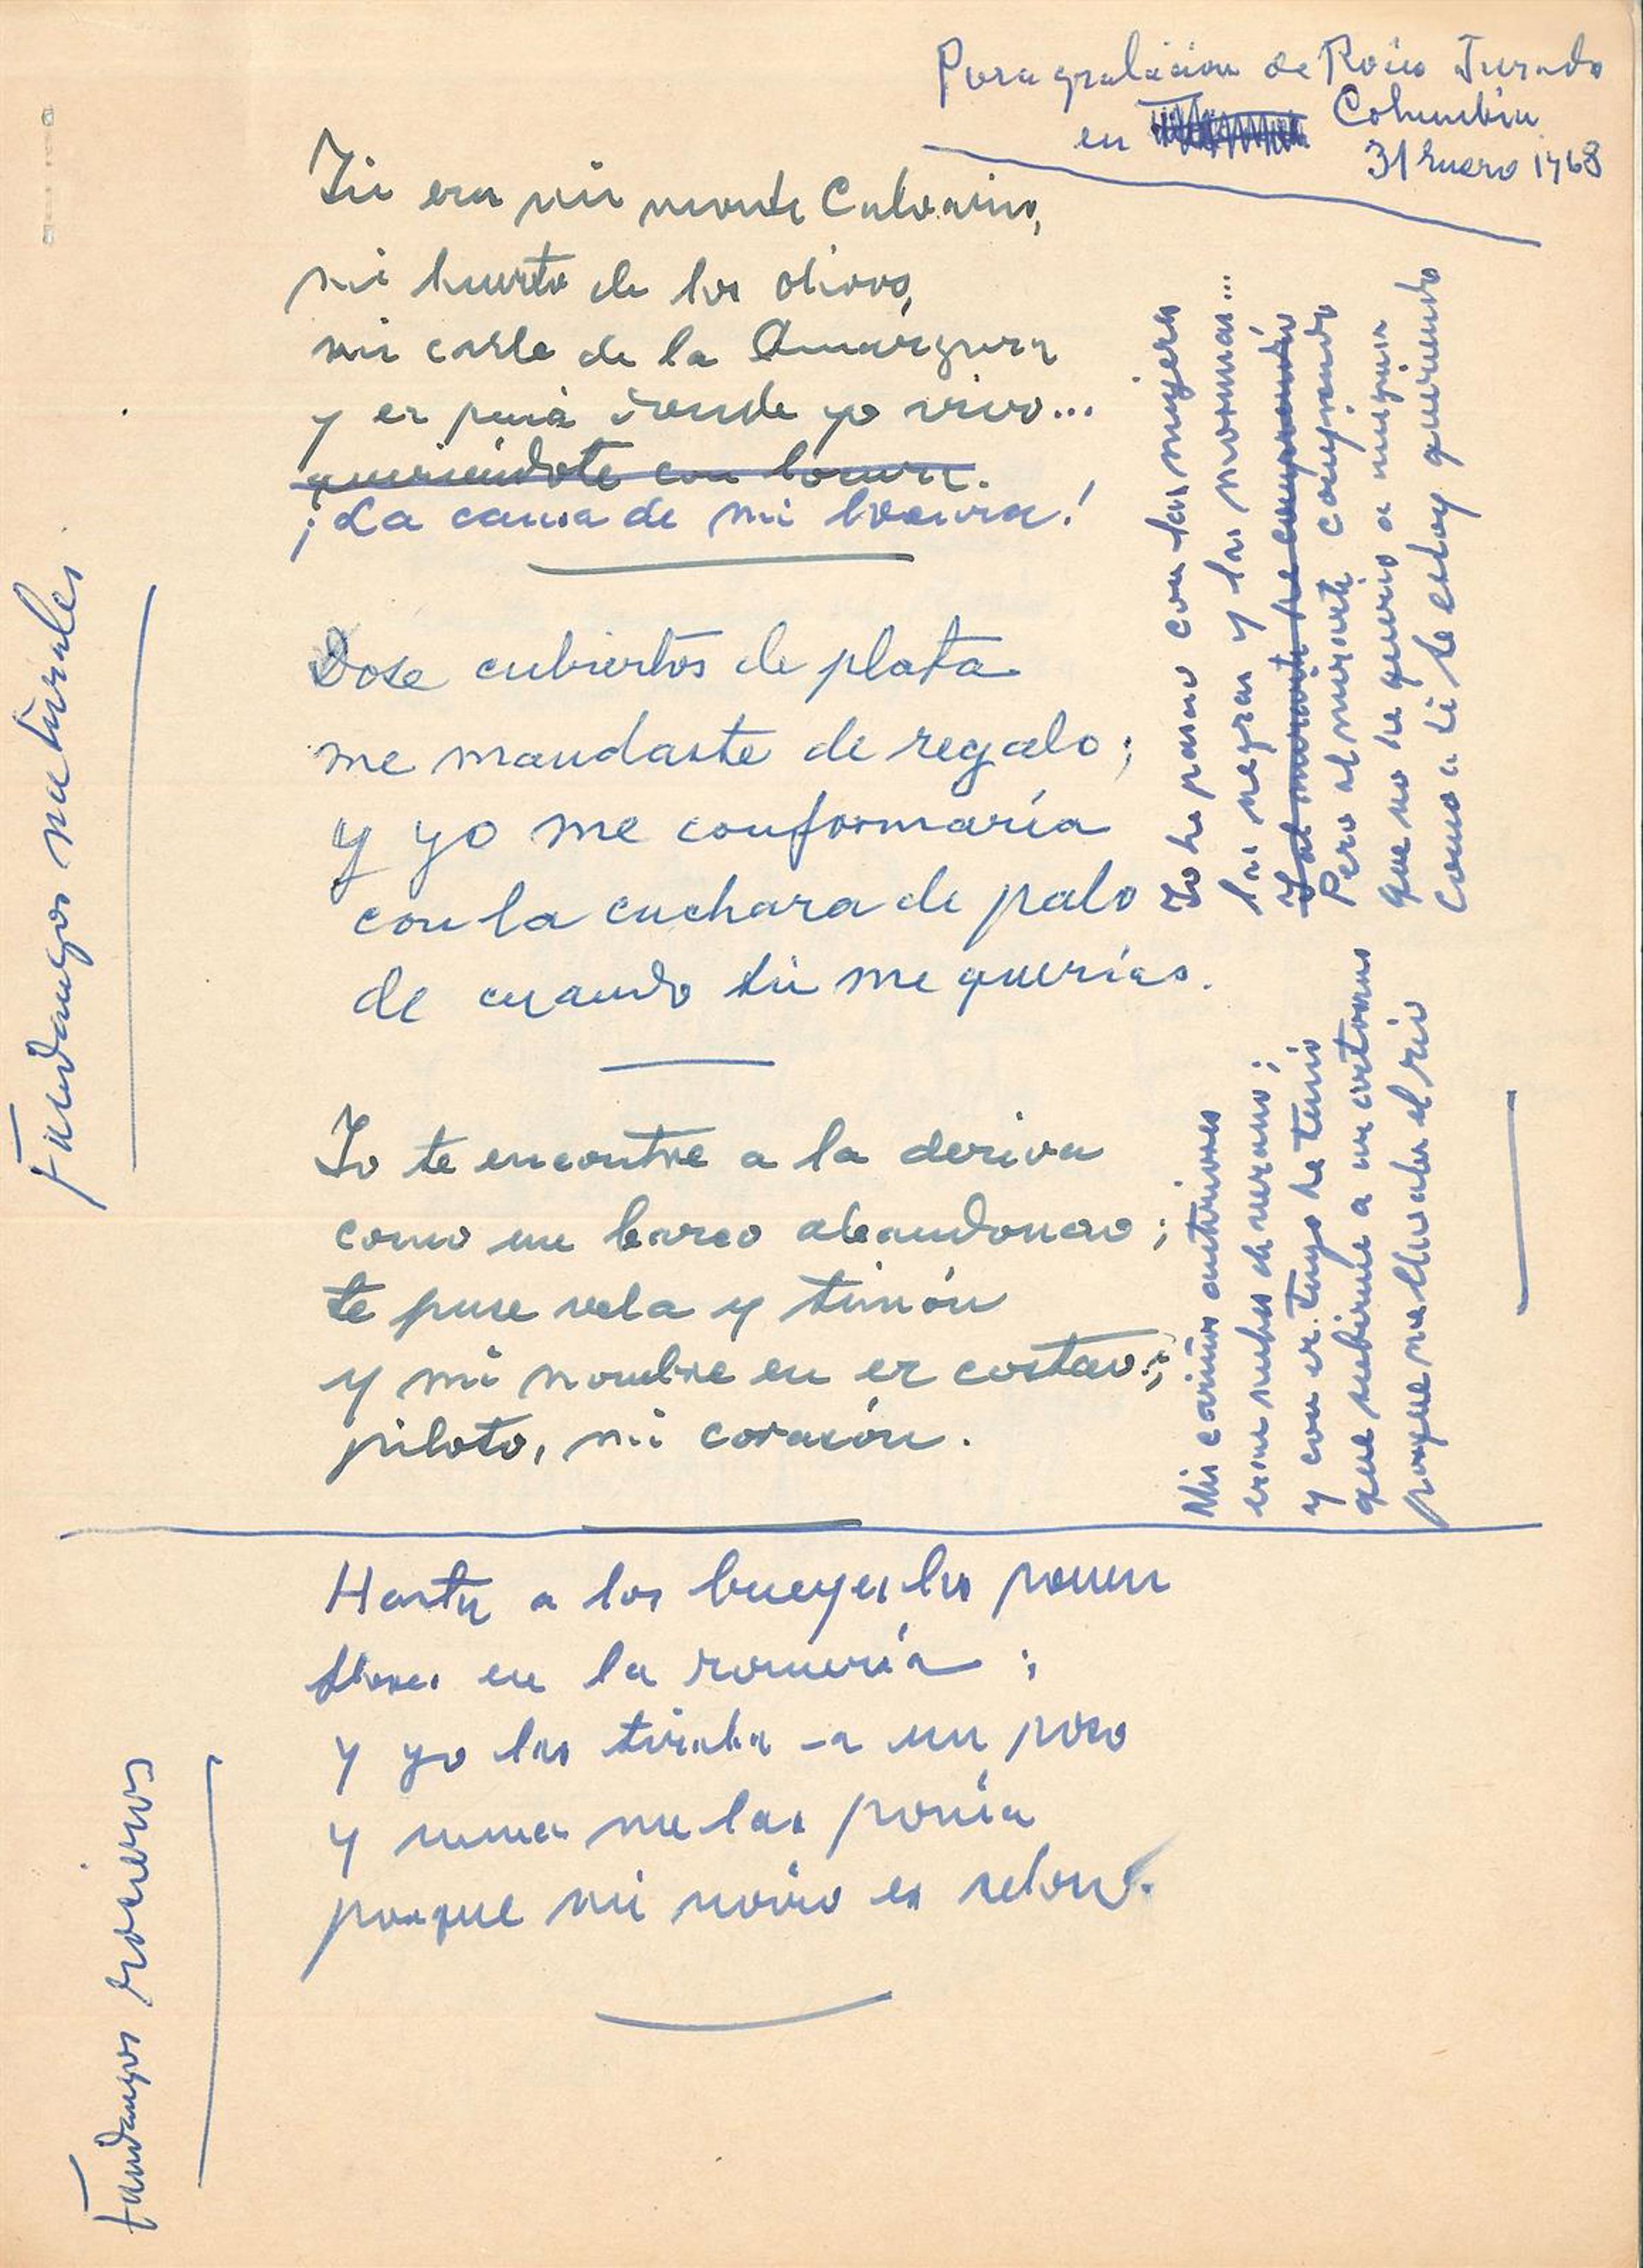 Para grabación de Rocío Jurado
en Columbia
31 Enero 1968
Tú era mi monte Calvario,
mi huerto de los olivos,
mi calle de la Amargura
y er puñá donde yo vivo...
queriéndote con locura.
¡La causa de mi locura!
Dose cubiertos de plata
me mandaste de regalo;
y yo me conformaría
con la cuchara de palo
de cuando tú me querías.
Yo te encontré a la deriva
como un barco abandonao;
te puse vela y timón
y mi nombre en er costao;
piloto, mi corasón.
Fandangos naturales
Yo he pasao con las mujeres
las negras y las moronas...
Y al mirarte he comprendío
Pero al mirarte comprendo
que no he querío a ninguna
como a ti te estoy queriendo
Mis cariños anteriores
eran nubes de verano;
y con er tuyo he tenío
que subirme a un artozano
porque me llevaba el río
Hasta a los bueyes les ponen
flores en la romería;
y yo las tiraba a un poso
y nunca me las ponía
porque mi novio es seloso.
Fandangos rocieros